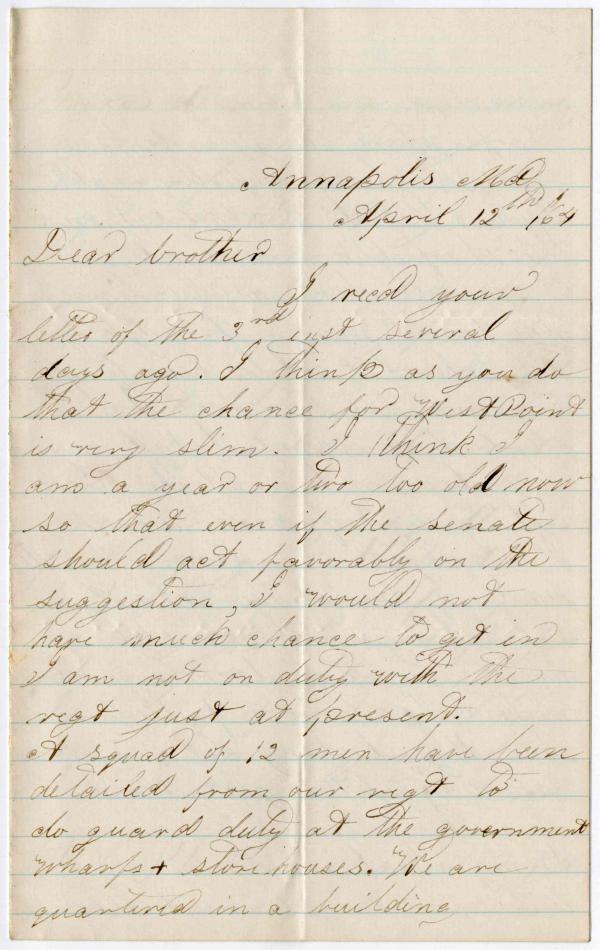 Annapolis Md
April 12th /64
Dear brother
I recd your
letter of the 3rd inst several
days ago. I think as you do
that the chance for West Point
is very slim. I think I
am a year or two too old now
so that even if the senate
should act favorably on the
suggestion, I would not
have much chance to get in
I am not on duty with the
regt just at present.
A squad of 12 men have been
detailed from our regt to
do guard duty at the government
wharfs + store houses. We are
quartered in a building